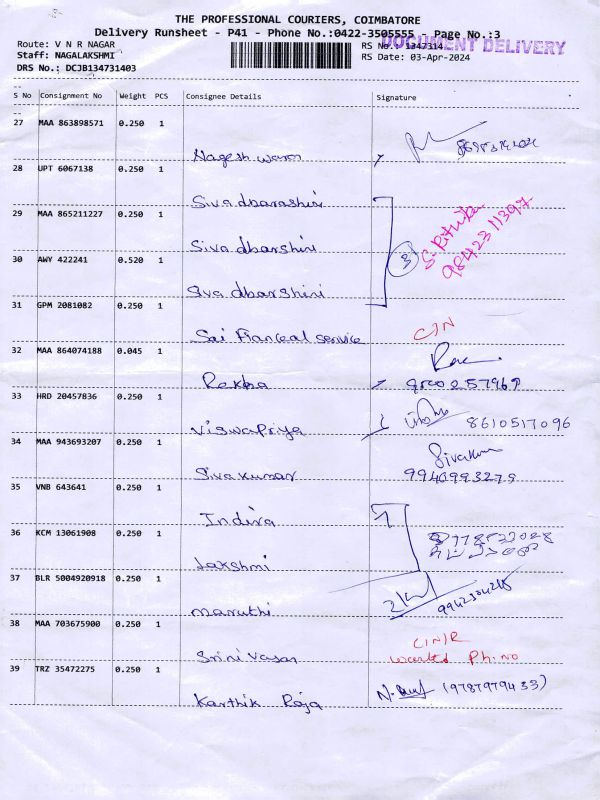 THE PROFESSIONAL COURIERS, COIMBATORE
Delivery Runsheet - P41 - Phone No.:0422-3505555 Page No.:3
Route: V N R NAGAR
RS No.: 1347314
DOCUMENT DELIVERY
Staff: NAGALAKSHMI
RS Date: 03-Apr-2024
DRS No.: DCJB134731403
S No Consignment No Weight PCS Consignee Details Signature
27 MAA 863898571 0.250 1
Nageshwaran
28 UPT 6067138 0.250 1
Sivadharashini
29 MAA 865211227 0.250 1
Sivadbarshini
S. Rithika
9842311397
3
30 AWY 422241 0.520 1
Sivadbarshini
31 GPM 2081082 0.250 1
Sai Financeal service
C/N
32 MAA 864074188 0.045 1
Rekha
33 HRD 20457836 0.250 1
Viswapriya
8610517096
34 MAA 943693207 0.250 1
Sivakumar
Sivakum
9940993279
35 VNB 643641 0.250 1
Indira
36 KCM 13061908 0.250 1
Lakshmi
37 BLR 5004920918 0.250 1
Maruthi
38 MAA 703675900 0.250 1
Srinivasan
C/N/R
wanted Ph.no
39 TRZ 35472275 0.250 1
Karthik Raja
(9787979433)